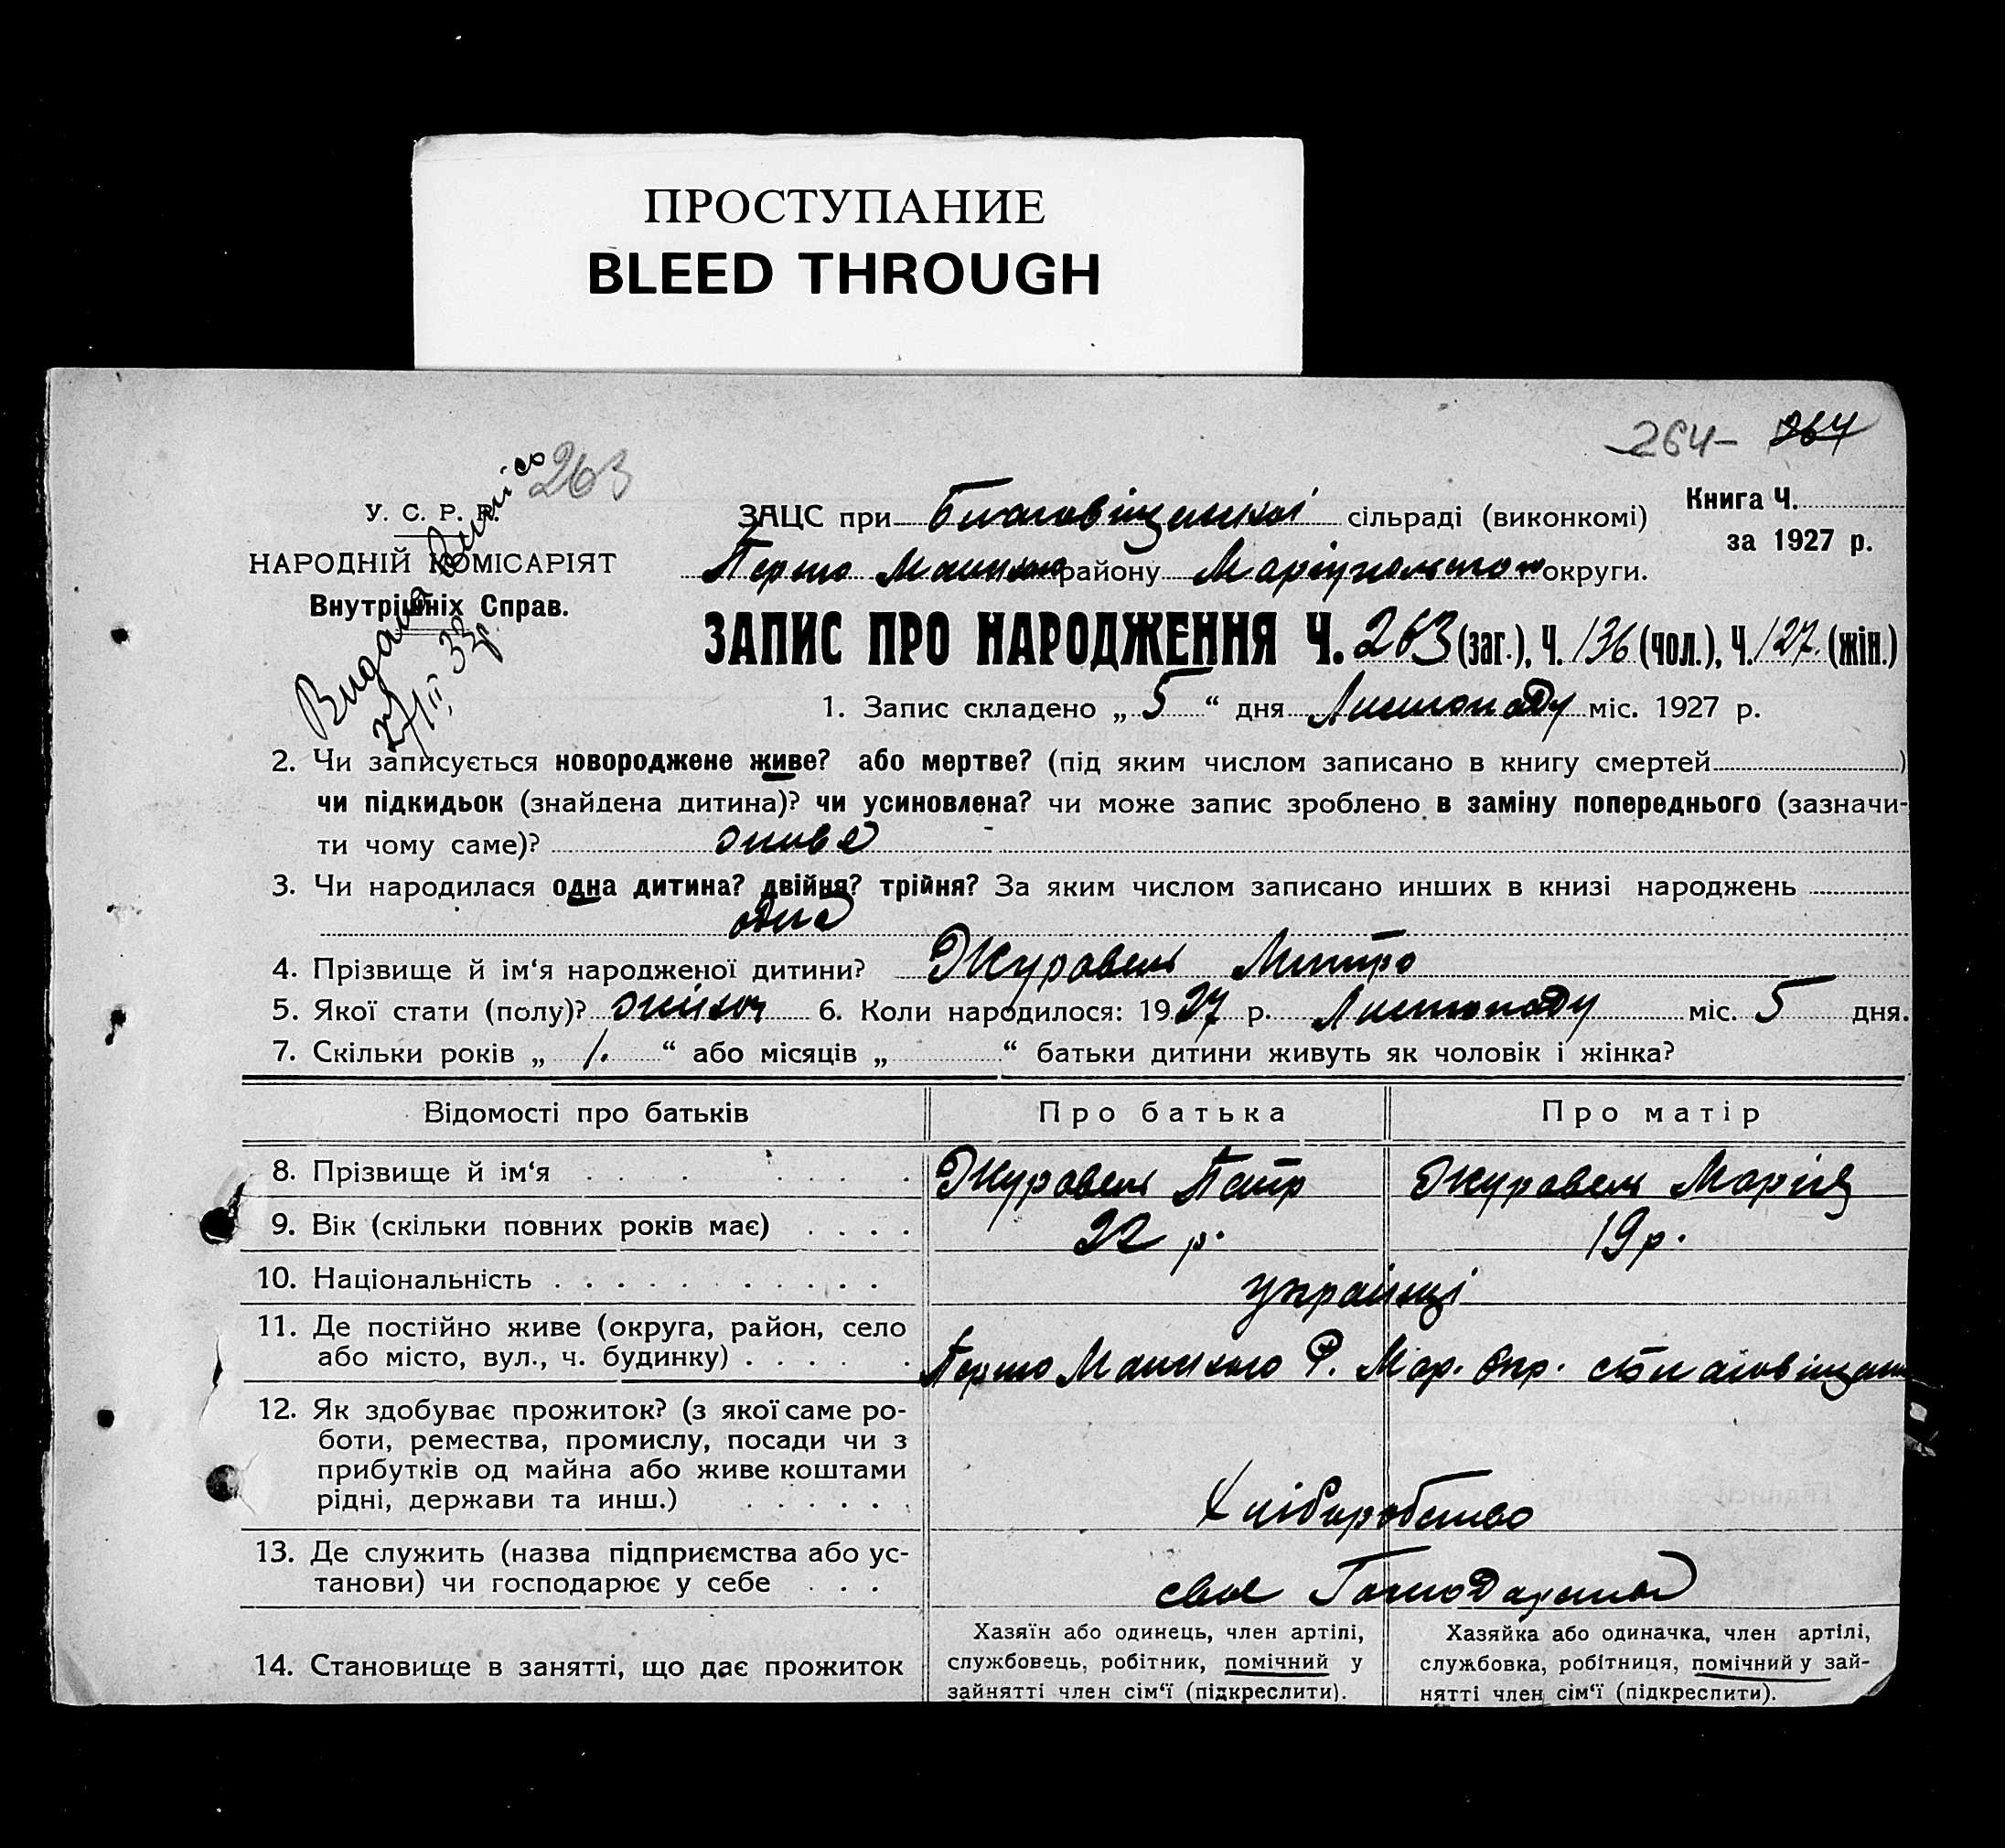 ПРОСТУПАНИЕ
BLEED THROUGH
264 264
263
Книга Ч.
за 1927 р.
У. С. Р. Р.
НАРОДНІЙ КОМІСАРІЯТ
Внутрішніх Справ.
Видана виписа
27/ІІ 33р
ЗАЦС при Благовіщенкі сільраді (виконкомі)
Першо Мансько району Маріупольсько округи.
ЗАПИС ПРО НАРОДЖЕННЯ Ч. 263 (заг.), Ч. 136 (чол.), Ч. 127. (жін.)
1. Запис складено „ 5 “ дня Листопаду міс. 1927 р.
2. Чи записується новороджене живе? або мертве? (під яким числом записано в книгу смертей )
чи підкидьок (знайдена дитина)? чи усиновлена? чи може запис зроблено в заміну попереднього (зазначи-
ти чому саме)? живе
3. Чи народилася одна дитина? двійня? трійня? За яким числом записано инших в книзі народжень
одна
4. Прізвище й ім‘я народженої дитини? Журавель Митро
5. Якої стати (полу)? 6. Коли народилося: 1927 р. Листопаду міс. 5 дня.
7. Скільки років „ 1. “ або місяців „ “ батьки дитини живуть як чоловік і жінка?
Відомості про батьків Про батька Про матір
8. Прізвище й ім‘я Журавель Петр Журавель Марія
9. Вік (скільки повних років має) 22 р. 19 р.
10. Національність українці
11. Де постійно живе (округа, район, село
або місто, вул., ч. будинку) Першо Мансько Р. Мар. Окр. с Благовіщен
12. Як здобуває прожиток? (з якої саме ро-
боти, ремества, промислу, посади чи з
прибутків од майна або живе коштами
рідні, держави та инш.) Хліборобство
13. Де служить (назва підприємства або ус-
танови) чи господарює у себе своє Господарство
14. Становище в занятті, що дає прожиток
Хазяїн або одинець, член артілі,
службовець, робітник, помічний у
зайнятті член сім‘ї (підкреслити).
Хазяйка або одиначка, член артілі,
службовка, робітниця, помічний у зай-
нятті член сім‘ї (підкреслити).